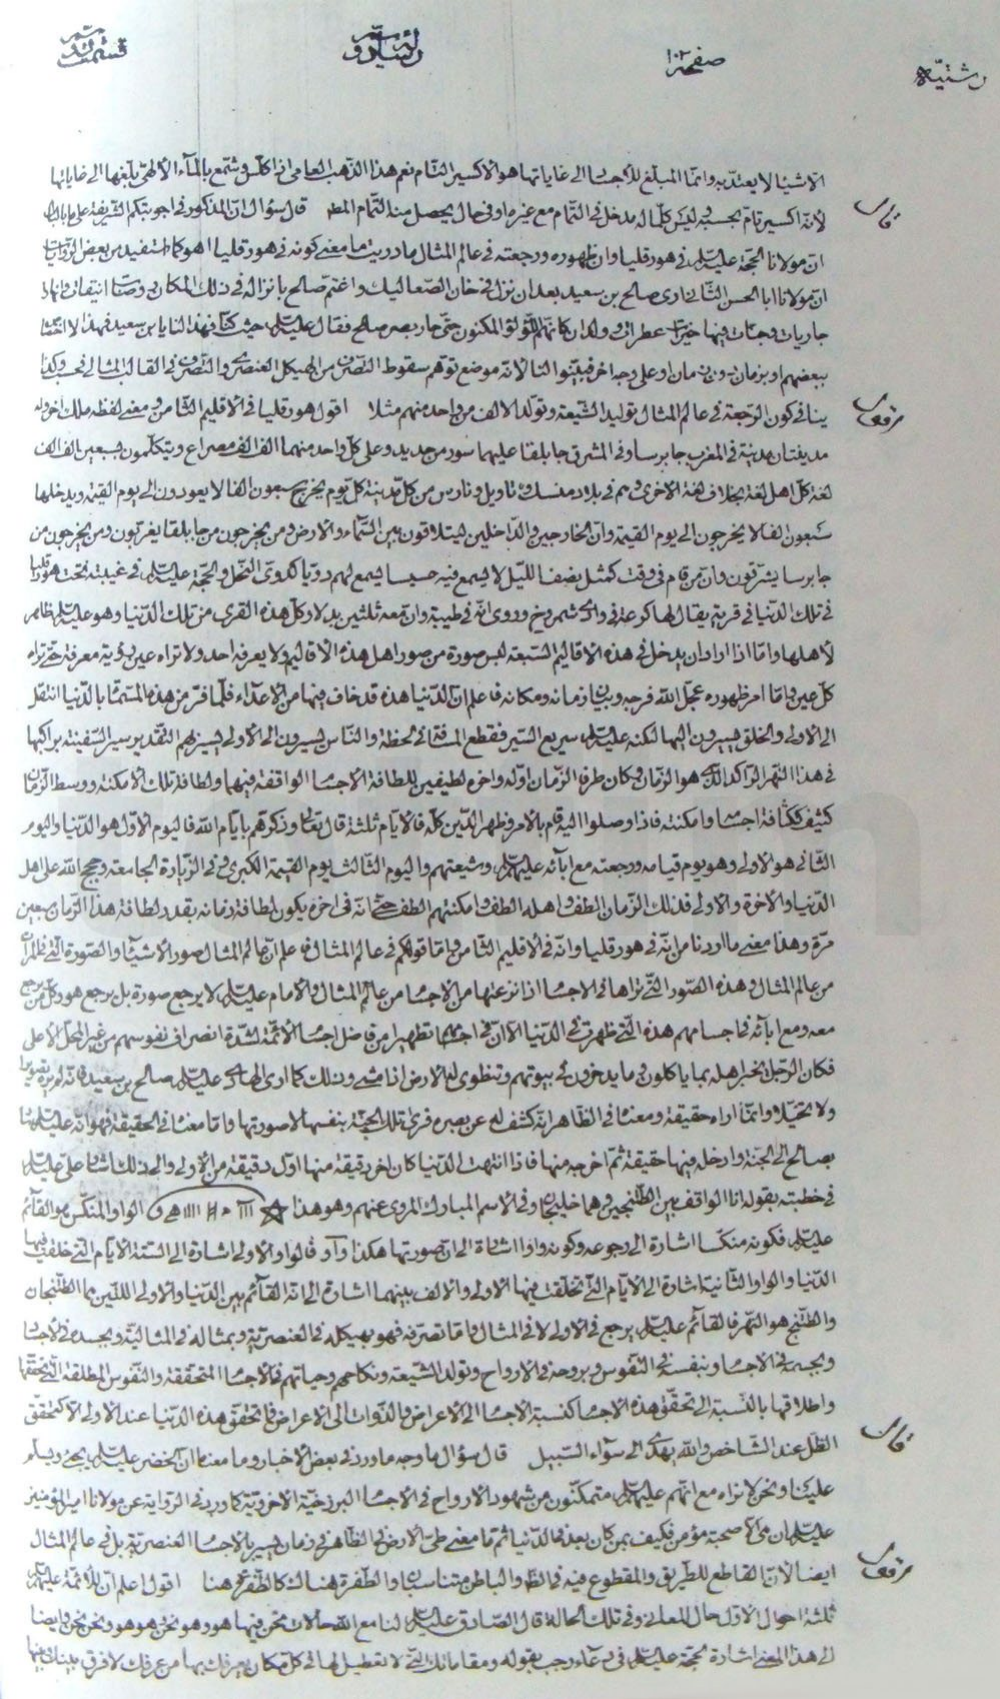 رشتيّه
صفحه ١٠٢
الاشياء لا يعتد به وانما المبلغ للاجساد الى غاياتها هو الاكسير التام نعم هذا الذهب العامي اذا كلس وشمع بالماء الالهي بلغها الى غاياتها
لانه اكسير تام بحسبه وليس كلما له مدخل في التمام مع غيره او في حال يحصل منه التمام المطلق قال سؤال ان المذكور في اجوبتكم الشريفة على ما بالبال
ان مولانا الحجة عليه السلام في هورقليا وان ظهوره ورجعته في عالم المثال ما دريت ما معنى كونه في هورقليا اهو كما استفيد من بعض الروايات
ان مولانا ابا الحسن الثالث ارى صالح بن سعيد بعد ان نزل في خان الصعاليك واغتم صالح بانزاله في ذلك المكان روضات انيقات وانهار
جاريات وجنات فيها خيرات عطرات وولدان كانهم اللؤلؤ المكنون حتى حار بصر صالح فقال عليه السلام حيث كنا فهذا لنا يا بن سعيد فهذا لا اختصاص
ببعضهم او بزمان دون زمان او على وجه اخر فبينوا لنا لانه موضع توهم سقوط التصرف من الهيكل العنصري والتصرف في القالب المثالي فحسب وكذا
ينافي كون الرجعة في عالم المثال توليد الشيعة وتولد الالف من واحد منهم مثلا اقول هورقليا في الاقليم الثامن ومعنى لفظه ملك اخر وله
مدينتان مدينة في المغرب جابرسا وفي المشرق جابلقا عليهما سور من حديد وعلى كل واحد منهما الف الف مصراع ويتكلمون بسبعين الف الف
لغة كل اهل لغة بخلاف لغة الاخرى وهم في بلاد منسك وتاويل وتارس من كل مدينة كل يوم يخرج سبعون الفا لا يعودون الى يوم القيمة ويدخلها
سبعون الفا لا يخرجون الى يوم القيمة وان الخارجين والداخلين ليتلاقون بين السماء والارض ومن يخرجون من جابلقا يغربون ومن يخرجون من
جابرسا يشرقون وان من قام في وقت كمثل نصف الليل لا يسمع فيه حسيسا يسمع لهم دويا كدوي النحل والحجة عليه السلام في غيبته تحت هورقليا
في تلك الدنيا في قرية يقال لها كرعة في وادي شمروخ وروى انه في طيبة وان معه ثلثين بدلا وكل هذه القرى من تلك الدنيا وهو عليه السلام ظاهر
لاهلها واما اذا اراد ان يدخل في هذه الاقاليم السبعة لبس صورة من صور اهل هذه الاقاليم ولا يعرفه احد ولا تراه عين رؤية معرفة حتى تراه
كل عين واما امر ظهوره عجل الله فرجه وبيان زمانه ومكانه فاعلم ان الدنيا هذه قد خاف فيها من الاعداء فلما فر من هذه المسماة بالدنيا انتقل
الى الاولى والخلق يسيرون اليها لكنه عليه السلام سريع السير فقطع المسافة في لحظة والناس يسيرون الى الاولى يسير بهم التقدير سير السفينة براكبها
في هذا النهر الراكد الذي هو الزمان وكان طرفا الزمان اوله واخره لطيفين للطافة الاجساد الواقفة فيهما ولطافة تلك الامكنة ووسط الزمان
كثيف لكثافة اجساده وامكنته فاذا وصلوا اليه قام بالامر وظهر الدين كله فالايام ثلثة قال تعالى وذكرهم بايام الله فاليوم الاول هو الدنيا واليوم
الثاني هو الاولى وهو يوم قيامه ورجعته مع ابائه عليهم السلام وشيعتهم واليوم الثالث يوم القيمة الكبرى وفي الزيارة الجامعة وحجج الله على اهل
الدنيا والاخرة والاولى فذلك الزمان الطف واهله الطف وامكنتهم الطف حتى انه في اخره يكون لطافة زمانه بقدر لطافة هذا الزمان سبعين
مرة وهذا معنى ما اردنا من انه في هورقليا وانه في الاقليم الثامن واما قولكم في عالم المثال فاعلم ان عالم المثال صور الاشياء والصورة التي في المرآة
من عالم المثال وهذه الصور التي تراها في الاجساد اذا نزعتها من الاجساد من عالم المثال والامام عليه السلام لا يرجع صورة بل يرجع هو وكل من يرجع
معه ومع ابائه في اجسامهم هذه التي ظهرت في الدنيا الا ان في اجسادهم تطهيرا من فاضل اجساد الائمة لشدة انصراف نفوسهم من غير المحل الاعلى
فكان الرجل يخبر اهله بما ياكلون وما يدخرون في بيوتهم وتنطوي له الارض اذا مشى وذلك كما ارى الهادي عليه السلام صالح بن سعيد فانه لم يره تصويرا
ولا تخيلا وانما اراه حقيقة ومعناه في الظاهر انه كشف له عن بصره فرأى تلك الجنة بنفسها لا صورتها واما معناه في الحقيقة فهو انه عليه السلام سار
بصالح الى الجنة وادخله فيها حقيقة ثم اخرجه منها فاذا انتهت الدنيا كان اخر دقيقة منها اول دقيقة من الاولى والى ذلك اشار علي عليه السلام
في خطبته بقوله انا الواقف بين الطتنجين وهما خليجان وفي الاسم المبارك المروي عنهم وهو هذا الواو المنكس هو القائم
عليه السلام فكونه منكسا اشارة الى رجوعه وكونه واوا اشارة الى ان صورتها هكذا واو فالواو الاولى اشارة الى الستة الايام التي خلقت فيها
الدنيا والواو الثانية اشارة الى الايام التي تخلقت فيها الاولى والالف بينهما اشارة الى انه القائم بين الدنيا والاولى اللتين هما الطتنجان
والطتنج هو النهر فالقائم عليه السلام يرجع في الاولى لا في المثال واما تصرفه فهو بهيكله في العنصرية وبمثاله في المثالية وبجسده في الاجساد
وبجسمه في الاجسام وبنفسه في النفوس وبروحه في الارواح وتولد الشيعة ونكاحهم وحياتهم في الاجساد المتحققة والنفوس المطلقة التي تحققها
واطلاقها بالنسبة الى تحقق هذه الاجساد كنسبة الاجساد الى الاعراض والذوات الى الاعراض فما تحقق هذه الدنيا عند الاولى الا كتحقق
الظل عند الشاخص والله يهدي الى سواء السبيل قال سؤال ما وجه ما ورد في بعض الاخبار وما معناه ان الخضر عليه السلام يجيء ويسلم
علينا ونحن لا نراه مع انهم عليهم السلام متمكنون من شهود الارواح في الاجساد البرزخية الاخروية كما ورد في الرواية عن مولانا امير المؤمنين
عليه السلام ان في كل صحبة مؤمن فكيف بمن كان بعد في الدنيا ثم ما معنى طي الارض في الظاهر في زمان يسير بالاجساد العنصرية بل في عالم المثال
ايضا لان القاطع للطريق والمقطوع فيه في الظاهر والباطن متناسبان والطفرة هناك كالطفرة هنا اقول اعلم ان للائمة عليهم السلام
ثلثة احوال الاول حال المعاني وفي تلك الحالة قال الصادق عليه السلام لنا مع الله حالات نحن فيها هو وهو نحن وهو هو ونحن نحن وايضا
الى هذا المعنى اشارة الحجة عليه السلام في دعاء رجب بقوله ومقاماتك التي لا تعطيل لها في كل مكان يعرفك بها من عرفك لا فرق بينك وبينها